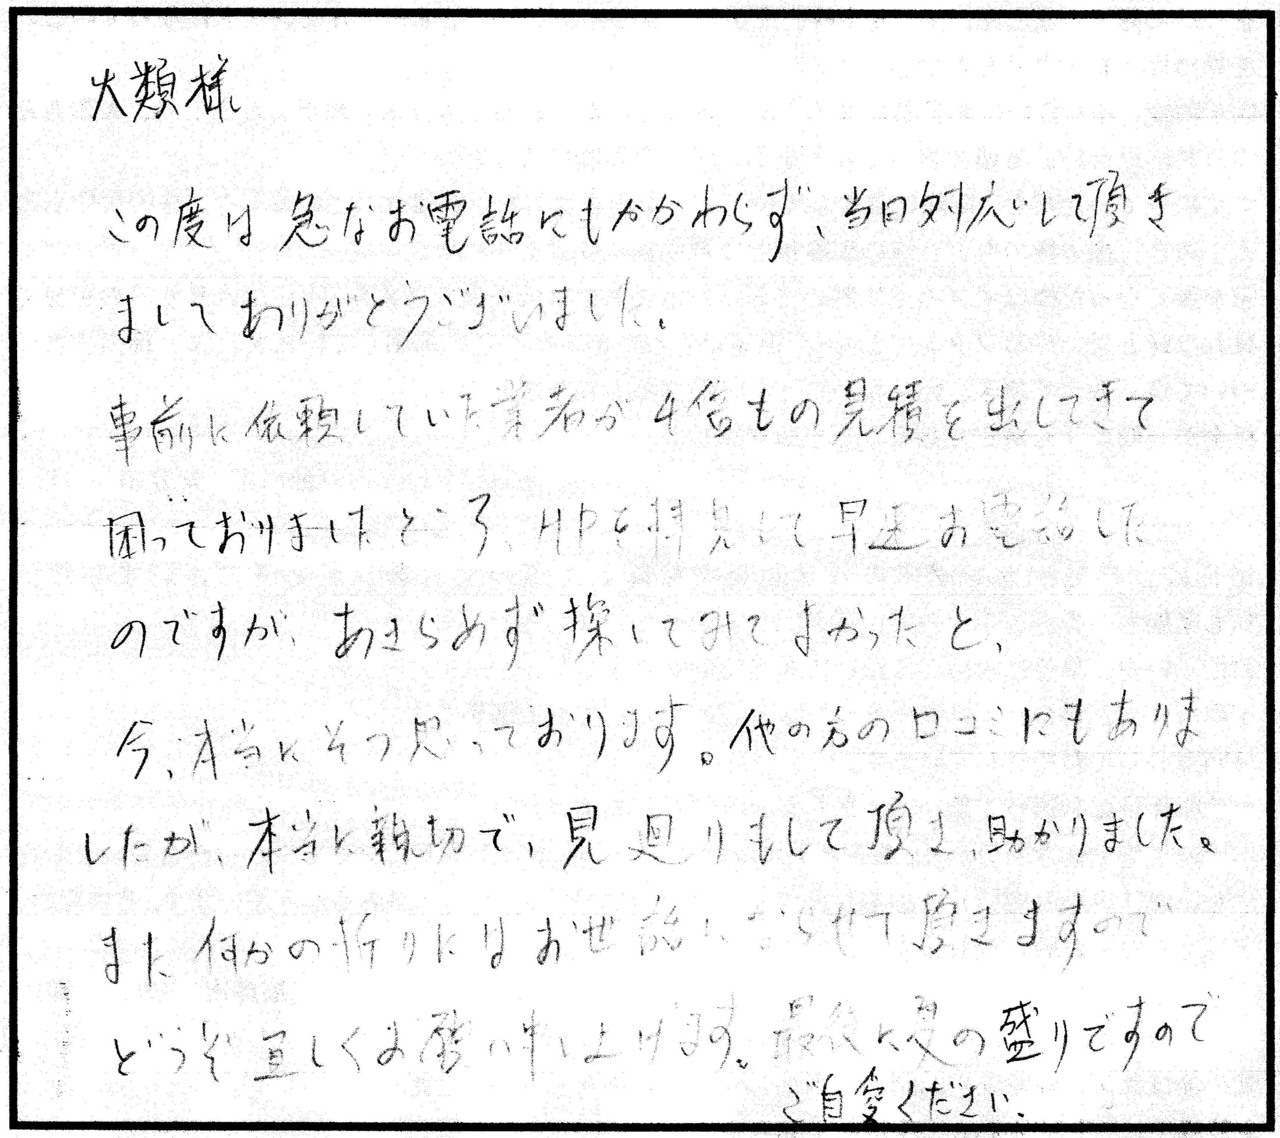 大類様
この度は急なお電話にもかかわらず、当日対応して頂き
ましてありがとうございました。
事前に依頼していた業者が4倍もの見積を出してきて
困っておりましたところ、HPを拝見して早速お電話した
のですが、あきらめず探してみてよかったと、
今、本当にそう思っております。他の方の口コミにもありま
したが、本当に親切で、見廻りもして頂き助かりました。
また何かの折りにはお世話にならせて頂きますので
どうぞ宜しくお願い申し上げます。最後に夏の盛りですので
ご自愛ください。